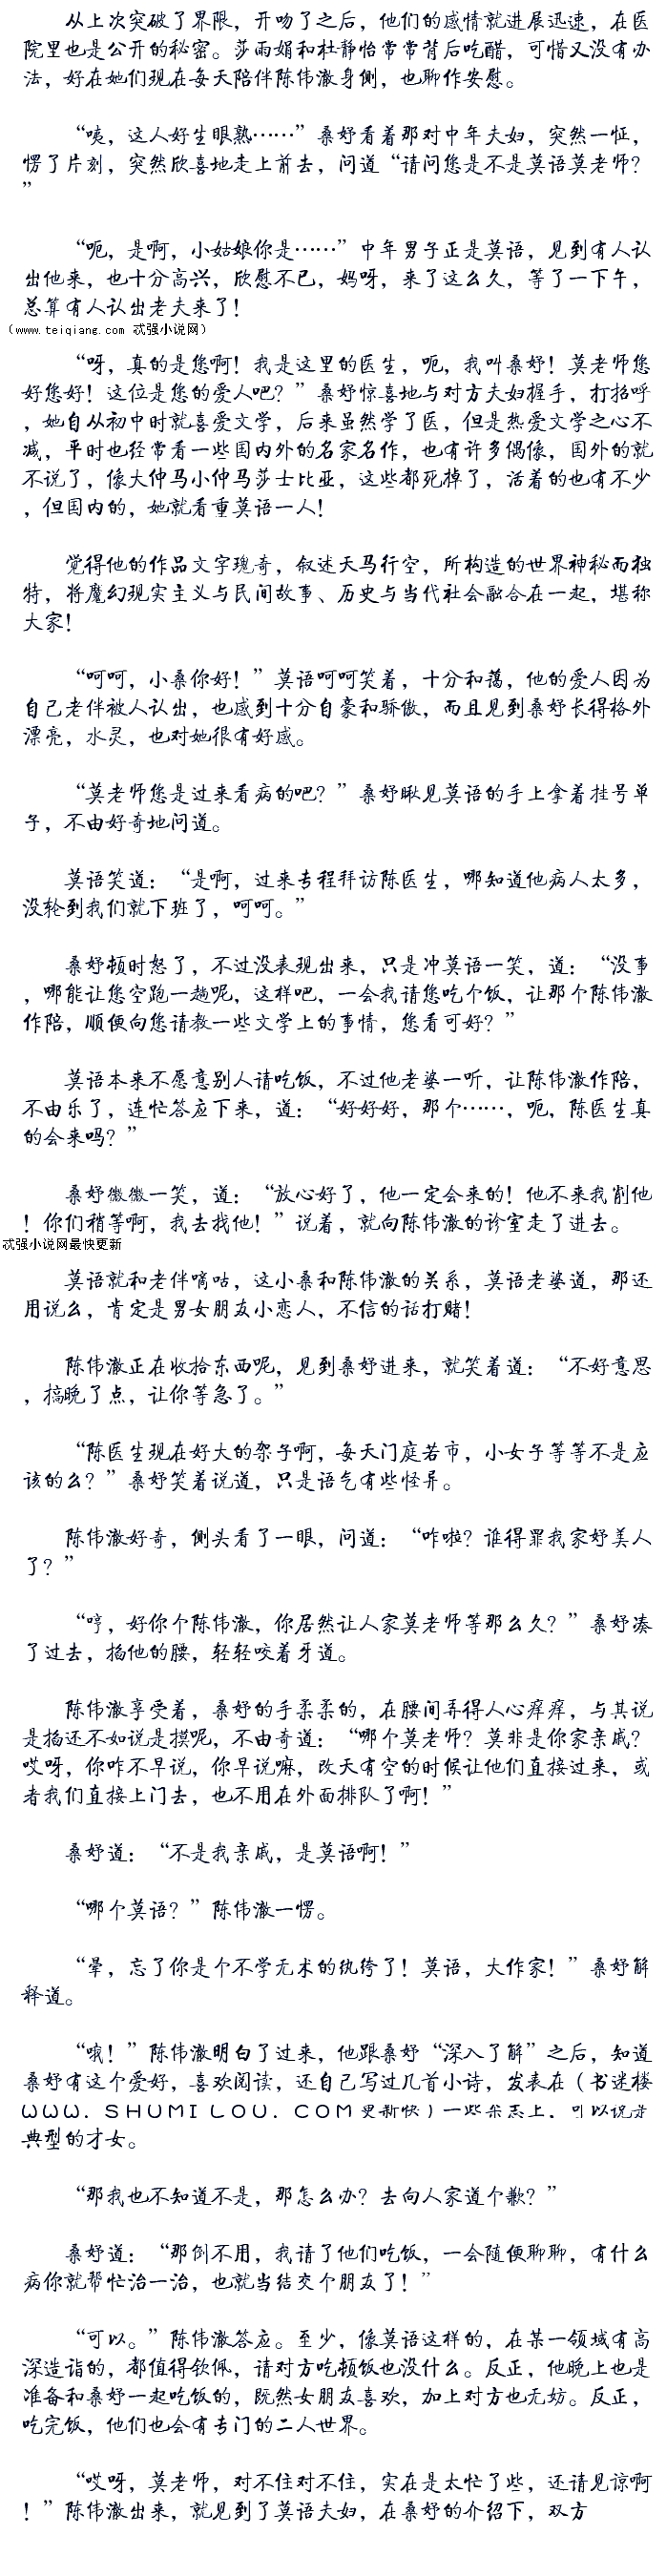 从上次突破了界限，开吻了之后，他们的感情就进展迅速，在医
院里也是公开的秘密。莎雨娟和杜静怡常常背后吃醋，可惜又没有办
法，好在她们现在每天陪伴陈伟澈身侧，也聊作安慰。
“咦，这人好生眼熟……”桑妤看着那对中年夫妇，突然一怔，
愣了片刻，突然欣喜地走上前去，问道“请问您是不是莫语莫老师？
”
“呃，是啊，小姑娘你是……”中年男子正是莫语，见到有人认
出他来，也十分高兴，欣慰不已，妈呀，来了这么久，等了一下午，
总算有人认出老夫来了！
（www.teiqiang.com 忒强小说网）
“呀，真的是您啊！我是这里的医生，呃，我叫桑妤！莫老师您
好您好！这位是您的爱人吧？”桑妤惊喜地与对方夫妇握手，打招呼
，她自从初中时就喜爱文学，后来虽然学了医，但是热爱文学之心不
减，平时也经常看一些国内外的名家名作，也有许多偶像，国外的就
不说了，像大仲马小仲马莎士比亚，这些都死掉了，活着的也有不少
，但国内的，她就看重莫语一人！
觉得他的作品文字瑰奇，叙述天马行空，所构造的世界神秘而独
特，将魔幻现实主义与民间故事、历史与当代社会融合在一起，堪称
大家！
“呵呵，小桑你好！”莫语呵呵笑着，十分和蔼，他的爱人因为
自己老伴被人认出，也感到十分自豪和骄傲，而且见到桑妤长得格外
漂亮，水灵，也对她很有好感。
“莫老师您是过来看病的吧？”桑妤瞅见莫语的手上拿着挂号单
子，不由好奇地问道。
莫语笑道：“是啊，过来专程拜访陈医生，哪知道他病人太多，
没轮到我们就下班了，呵呵。”
桑妤顿时怒了，不过没表现出来，只是冲莫语一笑，道：“没事
，哪能让您空跑一趟呢，这样吧，一会我请您吃个饭，让那个陈伟澈
作陪，顺便向您请教一些文学上的事情，您看可好？”
莫语本来不愿意别人请吃饭，不过他老婆一听，让陈伟澈作陪，
不由乐了，连忙答应下来，道：“好好好，那个……，呃，陈医生真
的会来吗？”
桑妤微微一笑，道：“放心好了，他一定会来的！他不来我削他
！你们稍等啊，我去找他！”说着，就向陈伟澈的诊室走了进去。
忒强小说网最快更新
莫语就和老伴嘀咕，这小桑和陈伟澈的关系，莫语老婆道，那还
用说么，肯定是男女朋友小恋人，不信的话打赌！
陈伟澈正在收拾东西呢，见到桑妤进来，就笑着道：“不好意思
，搞晚了点，让你等急了。”
“陈医生现在好大的架子啊，每天门庭若市，小女子等等不是应
该的么？”桑妤笑着说道，只是语气有些怪异。
陈伟澈好奇，侧头看了一眼，问道：“咋啦？谁得罪我家妤美人
了？”
“哼，好你个陈伟澈，你居然让人家莫老师等那么久？”桑妤凑
了过去，掐他的腰，轻轻咬着牙道。
陈伟澈享受着，桑妤的手柔柔的，在腰间弄得人心痒痒，与其说
是掐还不如说是摸呢，不由奇道：“哪个莫老师？莫非是你家亲戚？
哎呀，你咋不早说，你早说嘛，改天有空的时候让他们直接过来，或
者我们直接上门去，也不用在外面排队了啊！”
桑妤道：“不是我亲戚，是莫语啊！”
“哪个莫语？”陈伟澈一愣。
“晕，忘了你是个不学无术的纨绔了！莫语，大作家！”桑妤解
释道。
“哦！”陈伟澈明白了过来，他跟桑妤“深入了解”之后，知道
桑妤有这个爱好，喜欢阅读，还自己写过几首小诗，发表在（书迷楼
ＷＷＷ．ＳＨＵＭＩＬＯＵ．ＣＯＭ更新快）一些杂志上，可以说是
典型的才女。
“那我也不知道不是，那怎么办？去向人家道个歉？”
桑妤道：“那倒不用，我请了他们吃饭，一会随便聊聊，有什么
病你就帮忙治一治，也就当结交个朋友了！”
“可以。”陈伟澈答应。至少，像莫语这样的，在某一领域有高
深造诣的，都值得钦佩，请对方吃顿饭也没什么。反正，他晚上也是
准备和桑妤一起吃饭的，既然女朋友喜欢，加上对方也无妨。反正，
吃完饭，他们也会有专门的二人世界。
“哎呀，莫老师，对不住对不住，实在是太忙了些，还请见谅啊
！”陈伟澈出来，就见到了莫语夫妇，在桑妤的介绍下，双方